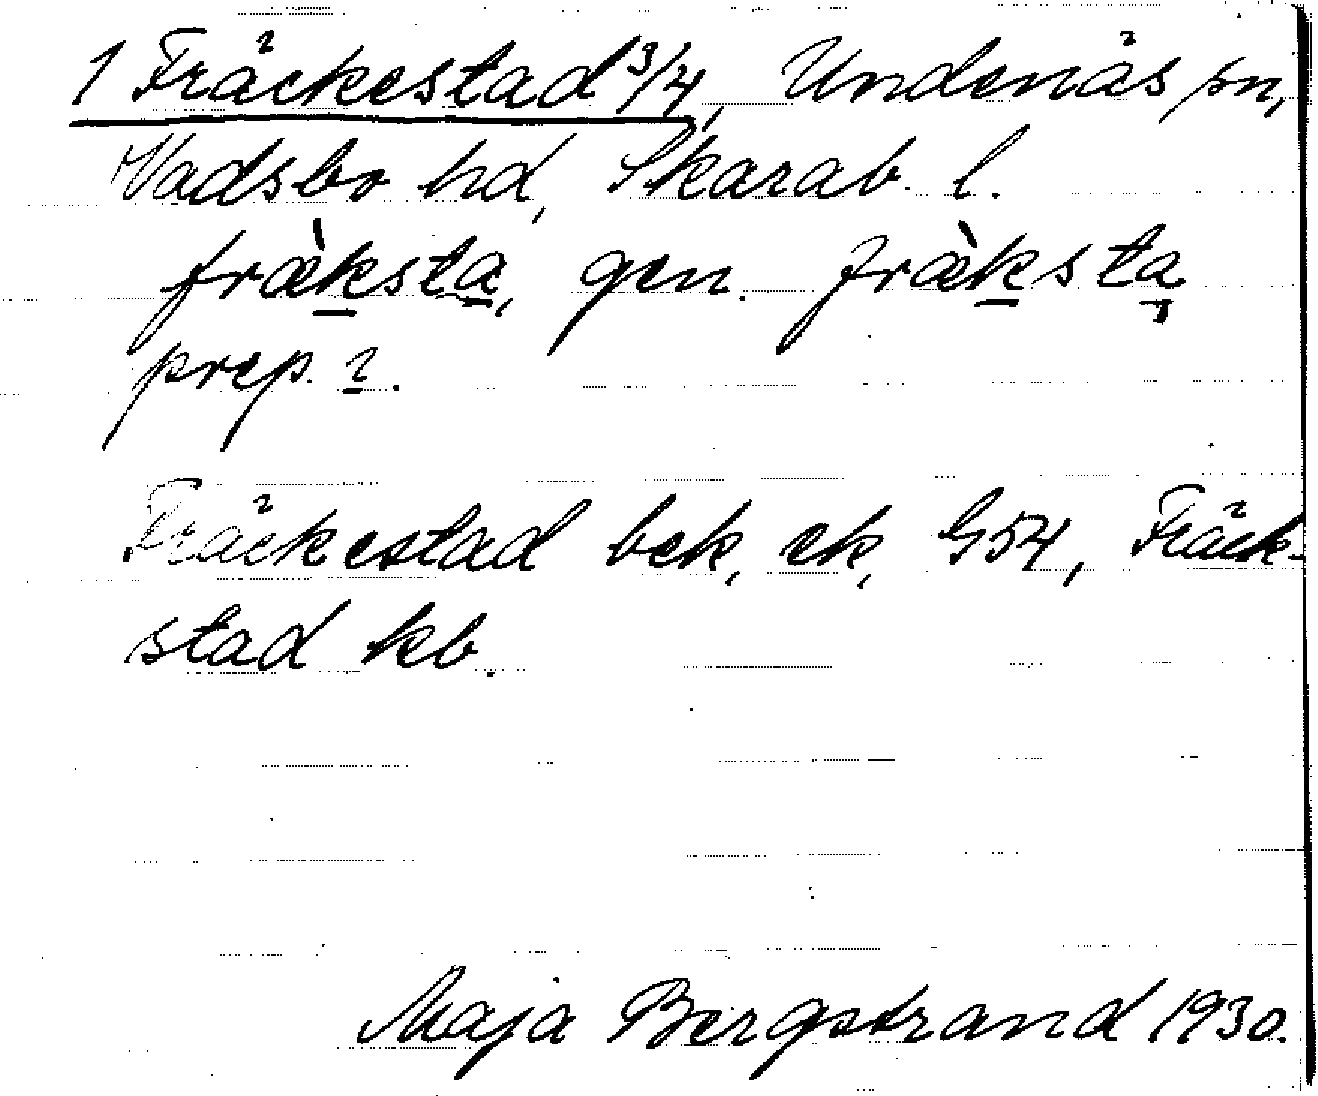 1 Fräckestad 3/4, Undenäs sn,
Vadsbo hd, Skarab. l.
fræ̀ksta, gen. fræ̀ksta
prep. i.
Fräckestad bek, ek, G54, Fräck-
stad kb.
Maja Bergstrand 1930.